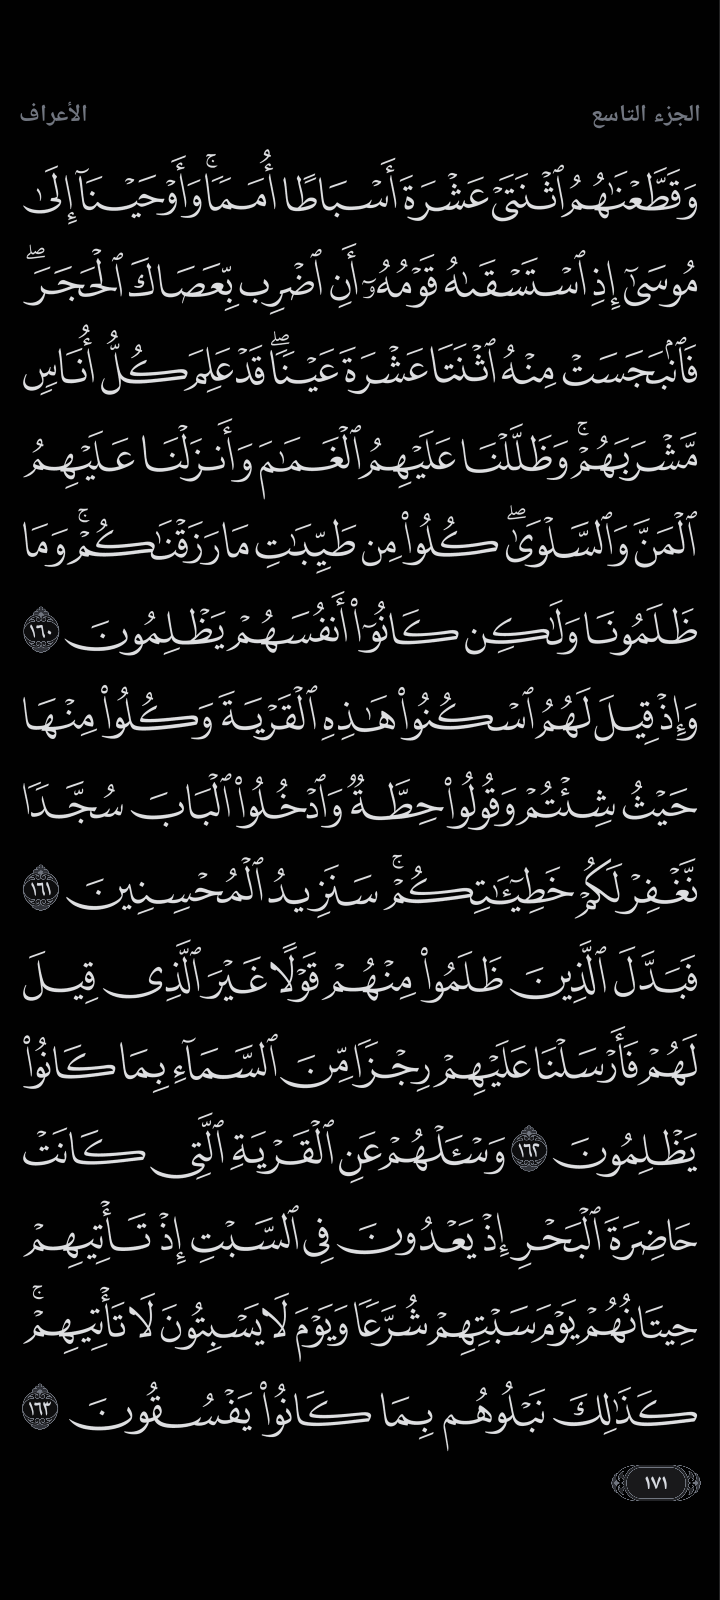 الجزء التاسع
الأعراف
وَقَطَّعْنَٰهُمُ ٱثْنَتَىْ عَشْرَةَ أَسْبَاطًا أُمَمًۭا ۚ وَأَوْحَيْنَآ إِلَىٰ
مُوسَىٰٓ إِذِ ٱسْتَسْقَىٰهُ قَوْمُهُۥٓ أَنِ ٱضْرِب بِّعَصَاكَ ٱلْحَجَرَ ۖ
فَٱنۢبَجَسَتْ مِنْهُ ٱثْنَتَا عَشْرَةَ عَيْنًۭا ۖ قَدْ عَلِمَ كُلُّ أُنَاسٍۢ
مَّشْرَبَهُمْ ۚ وَظَلَّلْنَا عَلَيْهِمُ ٱلْغَمَٰمَ وَأَنزَلْنَا عَلَيْهِمُ
ٱلْمَنَّ وَٱلسَّلْوَىٰ ۖ كُلُوا۟ مِن طَيِّبَٰتِ مَا رَزَقْنَٰكُمْ ۚ وَمَا
ظَلَمُونَا وَلَٰكِن كَانُوٓا۟ أَنفُسَهُمْ يَظْلِمُونَ ١٦٠
وَإِذْ قِيلَ لَهُمُ ٱسْكُنُوا۟ هَٰذِهِ ٱلْقَرْيَةَ وَكُلُوا۟ مِنْهَا
حَيْثُ شِئْتُمْ وَقُولُوا۟ حِطَّةٌۭ وَٱدْخُلُوا۟ ٱلْبَابَ سُجَّدًۭا
نَّغْفِرْ لَكُمْ خَطِيٓـَٰٔتِكُمْ ۚ سَنَزِيدُ ٱلْمُحْسِنِينَ ١٦١
فَبَدَّلَ ٱلَّذِينَ ظَلَمُوا۟ مِنْهُمْ قَوْلًا غَيْرَ ٱلَّذِى قِيلَ
لَهُمْ فَأَرْسَلْنَا عَلَيْهِمْ رِجْزًۭا مِّنَ ٱلسَّمَآءِ بِمَا كَانُوا۟
يَظْلِمُونَ ١٦٢ وَسْـَٔلْهُمْ عَنِ ٱلْقَرْيَةِ ٱلَّتِى كَانَتْ
حَاضِرَةَ ٱلْبَحْرِ إِذْ يَعْدُونَ فِى ٱلسَّبْتِ إِذْ تَأْتِيهِمْ
حِيتَانُهُمْ يَوْمَ سَبْتِهِمْ شُرَّعًۭا وَيَوْمَ لَا يَسْبِتُونَ لَا تَأْتِيهِمْ ۚ
كَذَٰلِكَ نَبْلُوهُم بِمَا كَانُوا۟ يَفْسُقُونَ ١٦٣
١٧١